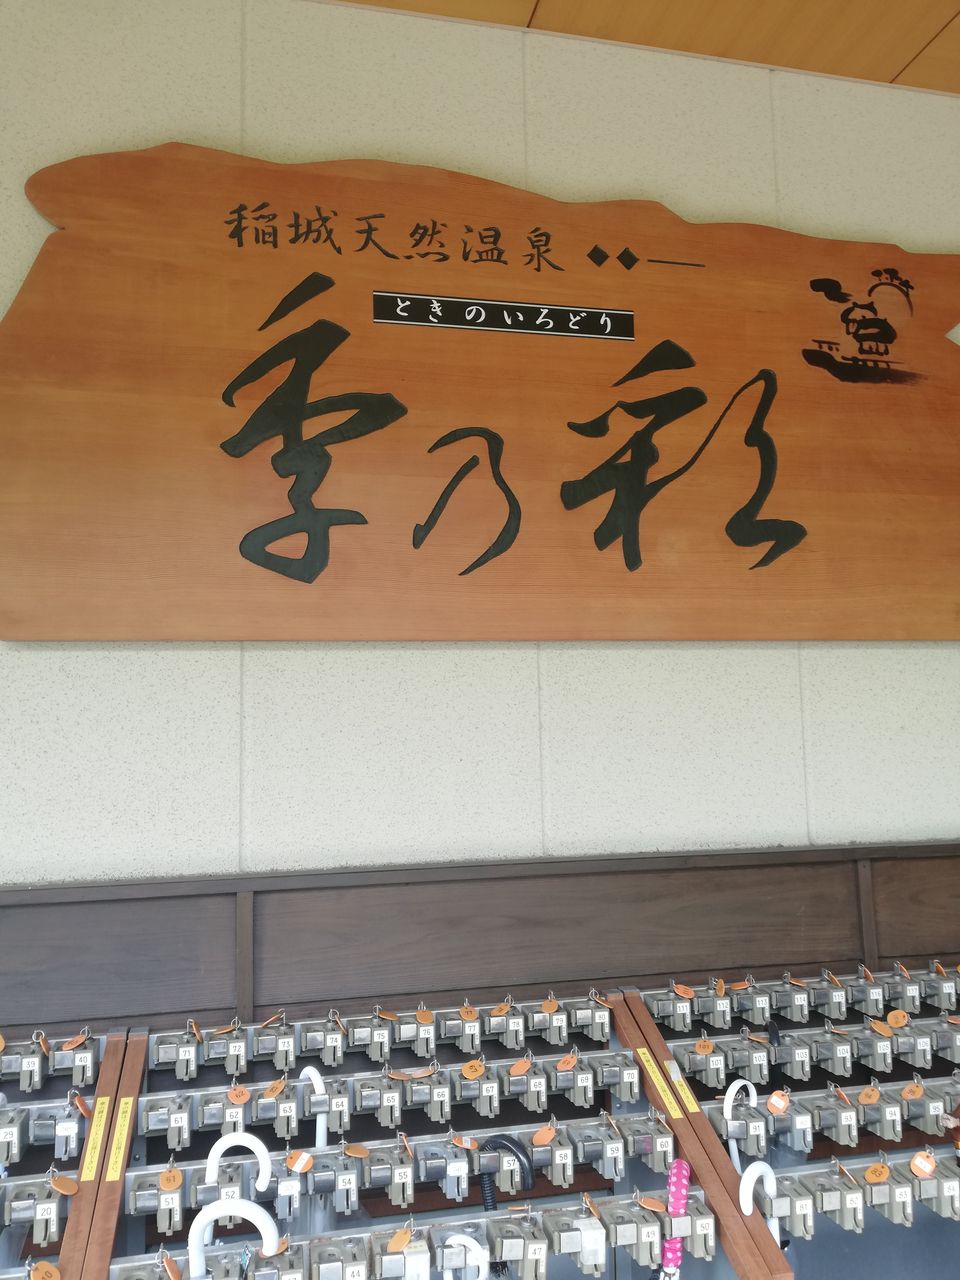 稲城天然温泉
ときのいろどり
季乃彩
111 112 113 114 115 116 117
39 40 71 72 73 74 75 76 77 78 79 80
101 102 103 104 105
61 62 63 64 65 66 67 68 69 70
91 93 94 95
29 51 52 54 55 57 58 59 60
20 81 82 83 84
44 47 49 50